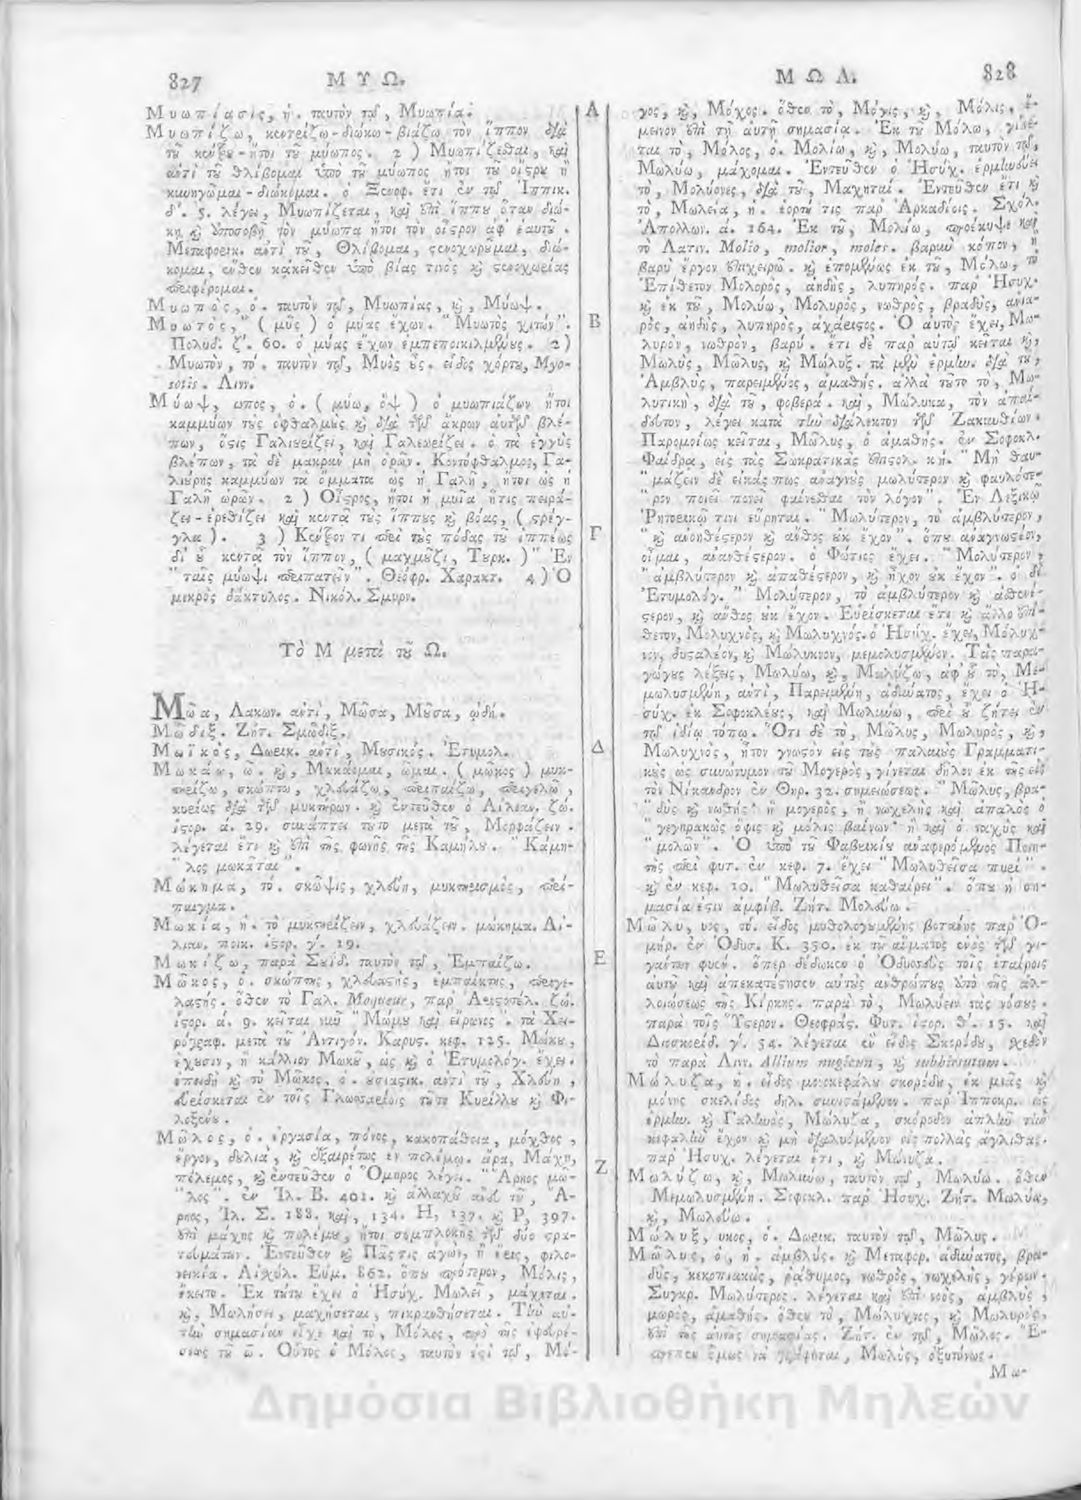 827 ΜΥΩ.
Μυωπίασις, ἡ. ταυτὸν τῷ, Μυωπία.
Μυωπίζω, κεντρίζω - διώκω - βιάζω τὸν ἵππον διὰ
τοῦ κέντρου - ἤτοι τοῦ μύωπος. 2) Μυωπίζεσθαι, καὶ
ἀντὶ τοῦ θλίβομαι ὑπὸ τοῦ μύωπος ἤτοι τοῦ οἴστρου ἢ
κυνηγῶμαι - διώκομαι. ὁ Ξενοφ. ἔτι ἐν τῷ Ἱππικ.
δ´. 5. λέγει, Μυωπίζεται, καὶ ἐπὶ ἵππου ὅταν διώ-
κῃ καὶ ὑποσοβῇ τὸν μύωπα ἤτοι τὸν οἶστρον ἀφ' ἑαυτοῦ.
Μεταφορικ. ἀντὶ τοῦ, Θλίβομαι, στενοχωροῦμαι, διώ-
κομαι, ἔνθεν κἀκεῖθεν ὑπὸ βίας τινὸς καὶ στενοχωρίας
περιφέρομαι.
Μυωπὸς, ὁ. ταυτὸν τῷ, Μυωπίας, καὶ, Μύωψ.
Μυωτὸς, (μῦς) ὁ μύας ἔχων. "Μυωτὸς χιτών".
Πολυδ. ζ´. 60. ὁ μύας ἔχων ἐμπεποικιλμένους. 2)
Μυωτὸν, τό. ταυτὸν τῷ, Μυὸς οὖς. εἶδος χόρτου, Myo-
sotis. Λιν.
Μύωψ, ωπος, ὁ. (μύω, ὂψ) ὁ μυωπιάζων ἤτοι
καμμύων τοὺς ὀφθαλμοὺς καὶ διὰ τῶν ἄκρων αὐτῶν βλέ-
πων, ὅστις Γαλιυρίζει, καὶ Γαλευρίζει. ὁ τὰ ἐγγὺς
βλέπων, τὰ δὲ μακρὰν μὴ ὁρῶν. Κοντόφθαλμος, Γα-
λιούρης καμμύων τὰ ὄμματα ὡς ἡ Γαλῆ, ἤτοι ὡς ἡ
Γαλῆ ὁρῶν. 2) Οἶστρος, ἤτοι ἡ μυῖα ἥτις πειρά-
ζει - ἐρεθίζει καὶ κεντᾷ τοὺς ἵππους καὶ βόας, (στρέγ-
γλα). 3) Κέντρον τι περὶ τοὺς πόδας τοῦ ἱππέως
δι' οὗ κεντᾷ τὸν ἵππον, (μαχμούζι, Τουρκ.)" Ἐν
"ταῖς μύωψι περιπατεῖν". Θεόφρ. Χαρακτ. 4) Ὁ
μικρὸς δάκτυλος. Νικόλ. Σμυρν.
Τὸ Μ μετὰ τοῦ Ω.
Μῶα, Λακων. ἀντὶ, Μῶσα, Μοῦσα, ᾠδή.
Μῶδιξ. Ζήτ. Σμῶδιξ.
Μωϊκὸς, Δωρικ. ἀντὶ, Μουσικός. Ἐτυμολ.
Μωκάω, ῶ. καὶ, Μωκάομαι, ῶμαι. (μῶκος) μυκ-
τηρίζω, σκώπτω, χλευάζω, περιπαίζω, περιγελῶ,
κυρίως διὰ τῶν μυκτήρων. καὶ ἐντεῦθεν ὁ Αἰλιαν. ζώ.
ἱστορ. ά. 29. συνάπτει τοῦτο μετὰ τοῦ, Μορφάζειν.
λέγεται ἔτι καὶ ἐπὶ τῆς φωνῆς τῆς Καμήλου. "Κάμη-
"λος μωκᾶται".
Μώκημα, τό. σκῶψις, χλεύη, μυκτηρισμὸς, περί-
παιγμα.
Μωκία, ἡ. τὸ μυκτηρίζειν, χλευάζειν. μώκημα. Αἰ-
λιαν. ποικ. ἱστορ. γ´. 19.
Μωκίζω, παρὰ Σουΐδ. ταυτὸν τῷ, Ἐμπαίζω.
Μῶκος, ὁ. σκώπτης, χλευαστὴς, ἐμπαίκτης, περιγε-
λαστής. ὅθεν τὸ Γαλ. Moqueur, παρ' Ἀριστοτέλ. ζώ.
ἱστορ. ά. 9. κεῖται νῦν "Μώμου καὶ εἴρωνος". τὰ Χει-
ρόγραφ. μετὰ τοῦ Ἀντιγόν. Καρυς. κεφ. 125. Μώκου,
ἔχουσιν, ἢ κάλλιον Μωκοῦ, ὡς καὶ ὁ Ἐτυμολόγ. ἔχει.
ἐπειδὴ καὶ τὸ Μῶκος, ὁ. οὐσιαστικ. ἀντὶ τοῦ, Χλεύη,
εὑρίσκεται ἐν τοῖς Γλωσσαρίοις τοῦτο Κυρίλλου καὶ Φι-
λοξένου.
Μῶλος, ὁ. ἐργασία, πόνος, κακοπάθεια, μόχθος,
ἔργον, δουλιὰ, καὶ ἐξαιρέτως ἐν πολέμῳ. ἄρα, Μάχη,
πόλεμος, καὶ ἐντεῦθεν ὁ Ὅμηρος λέγει. "Ἄρηος μῶ-
"λος". ἐν Ἰλ. Β. 401. καὶ ἀλλαχοῦ ἀντὶ τοῦ, Ἄ-
ρηος, Ἰλ. Σ. 188. καὶ, 134. Η, 137. καὶ Ρ, 397.
ἐπὶ μάχης καὶ πολέμου, ἤτοι συμπλοκῆς τῶν δύο στρα-
τευμάτων. Ἐντεῦθεν καὶ Πᾶς τις ἀγὼν, ἢ ἔρις, φιλο-
νεικία. Αἰσχύλ. Εὐμ. 862. ὅπου πρότερον, Μόλις,
ἔκειτο. Ἐκ τούτου ἔχει ὁ Ἡσύχ. Μωλεῖ, μάχεται.
καὶ, Μωλήσει, μαχήσεται, πικρανθήσεται. Τὴν αὐ-
τὴν σημασίαν εἶχε καὶ τὸ, Μόλος, πρὸ τῆς ἐφευρέ-
σεως τοῦ ω. Οὗτος ὁ Μόλος, ταυτὸν ἐστὶ τῷ, Μό-
Α
Β
Γ
Δ
Ε
Ζ
ΜΩΛ. 828
γος, καὶ, Μόχος. ὅθεν τὸ, Μόγις, καὶ, Μόλις, ἑ-
πόμενον ἐπὶ τῇ αὐτῇ σημασίᾳ. Ἐκ τοῦ Μόλω, γίνε-
ται τὸ, Μόλος, ὁ. Μολίω, καὶ, Μολύω, ταυτὸν τῷ,
Μωλύω, μάχομαι. Ἐντεῦθεν ὁ Ἡσύχ. ἑρμηνεύει
τὸ, Μολύονες, διὰ τοῦ, Μαχηταί. Ἐντεῦθεν ἔτι καὶ
τὸ, Μώλεια, ἡ. ἑορτή τις παρ' Ἀρκαδίοις. Σχόλ.
Ἀπολλων. ά. 164. Ἐκ τοῦ, Μολίω, προέκυψε καὶ
τὸ Λατιν. Molio, molior, moles. βαρὺν κόπον, ἢ
βαρὺ ἔργον ἐπιχειρῶ. καὶ ἑπομένως ἐκ τοῦ, Μόλω, τὸ
Ἐπίθετον Μολορὸς, ἀηδὴς, λυπηρός. παρ' Ἡσυχ.
καὶ ἐκ τοῦ, Μολύω, Μολυρὸς, νωθρὸς, βραδὺς, ἀνια-
ρὸς, ἀηδὴς, λυπηρὸς, ἀχάριστος. Ὁ αὐτὸς ἔχει, Μω-
λυρὸν, νωθρὸν, βαρύ. ἔτι δὲ παρ' αὐτῷ κεῖται καὶ,
Μωλὺς, Μῶλυς, καὶ Μώλυξ. τὰ μὲν ἑρμην. διὰ τοῦ,
Ἀμβλὺς, παρειμένος, ἀμαθής. ἀλλὰ τοῦτο τὸ, Μω-
λυτικὴ, διὰ τοῦ, φοβερά. καὶ, Μώλυκα, τὸν ἀπαί-
δευτον, λέγει κατὰ τὴν διάλεκτον τῶν Ζακυνθίων.
Παρομοίως κεῖται, Μῶλυς, ὁ ἀμαθής. ἐν Σοφοκλ.
Φαίδρᾳ, εἰς τὰς Σωκρατικὰς ἐπιστολ. κή. "Μὴ θαυ-
"μάζειν δὲ εἰκάς πως ἀναγνοὺς μωλύτερον καὶ φαυλότε-
"ρον ποιεῖ ποτεῖ φαίνεσθαι τὸν λόγον". Ἐν Λεξικῷ
Ῥητορικῷ τινι εὕρηται. "Μωλύτερον, τὸ ἀμβλύτερον,
"καὶ ἀνοηθέστερον καὶ ἄνθος οὐκ ἔχον". ὅπου ἀναγνωστέον,
οἶμαι, ἀνανθέστερον. ὁ Φώτιος ἔχει. "Μολύτερον,
"ἀμβλύτερον καὶ ἀπαθέστερον, καὶ ἦχον οὐκ ἔχον". ὁ δὲ
Ἐτυμολόγ. "Μολύτερον, τὸ ἀμβλύτερον καὶ ἀσθενέ-
στερον, καὶ ἄνθος οὐκ ἔχον. Εὑρίσκεται ἔτι καὶ ἄλλο ἐπί-
θετον, Μολυχνὸς, καὶ Μωλυχνός. ὁ Ἡσύχ. ἔχει, Μόλυχ-
νον, δυσαλέον, καὶ Μώλυκνον, μεμολυσμένον. Τὰς παρα-
γώγους λέξεις, Μωλύω, καὶ, Μωλύζω, ἀφ' οὗ τὸ, Με-
μωλυσμένη, ἀντὶ, Παρειμένη, ἀδύνατος, ἔχει ὁ Ἡ-
σύχ. ἐκ Σοφοκλέους, καὶ Μωλύνω, περὶ οὗ ζήτει ἐν
τῷ ἰδίῳ τόπῳ. Ὅτι δὲ τὸ, Μῶλυς, Μωλυρὸς, καὶ,
Μωλυχνὸς, ἦτον γνωστὸν εἰς τοὺς παλαιοὺς Γραμματι-
κοὺς ὡς συνώνυμον τοῦ Μογερὸς, γίνεται δῆλον ἐκ τῆς εἰς
τὸν Νίκανδρον ἐν Θηρ. 32. σημειώσεως. "Μῶλυς, βρα-
"δὺς καὶ νωθής· ἢ μογερὸς, ἢ νωχελὴς καὶ ἁπαλὸς ὁ
"γεγηρακὼς ὄφις καὶ μόλις βαίνων ἢ καὶ ὁ ταχὺς καὶ
"μολών". Ὁ ὑπὸ τοῦ Φαβρικίου ἀναφερόμενος Ποιη-
τὴς περὶ φυτ. ἐν κεφ. 7. ἔχει "Μωλυθεῖσα πυεῖ".
καὶ ἐν κεφ. 10. "Μωλυθεῖσα καθαίρει". ὅπου ἡ ση-
μασία ἐστὶν ἀμφίβ. Ζήτ. Μολεύω.
Μῶλυ, υος, τό. εἶδος μυθολογουμένης βοτάνης παρ' Ὁ-
μήρ. ἐν Ὀδυσ. Κ. 350. ἐκ τοῦ αἵματος ἑνὸς τῶν γι-
γάντων φυέν. ὅπερ δέδωκεν ὁ Ὀδυσσεὺς τοῖς ἑταίροις
αὐτοῦ καὶ ἀπεκατέστησεν αὐτοὺς ἀνθρώπους ὑπὸ τῆς ἀλ-
λοιώσεως τῆς Κίρκης. παρὰ τὸ, Μωλύειν τὰς νόσους.
παρὰ τοῖς Ὕστερον. Θεοφράς. Φυτ. ἱστορ. θ´. 15. καὶ
Διοσκορίδ. γ´. 54. λέγεται ἓν εἶδος Σκορόδου, σχεδὸν
τὸ παρὰ Λιν. Allium magicum, καὶ subhirsutum.
Μώλυζα, ἡ. εἶδος μονοκεφάλου σκορόδου, ἐκ μιᾶς καὶ
μόνης σκελίδος δηλ. συνιστάμενον. παρ' Ἱπποκρ. ὡς
ἑρμην. καὶ Γαληνὸς, Μώλυζα, σκόροδον ἁπλῆν τὴν
κεφαλὴν ἔχον καὶ μὴ διαλυόμενον εἰς πολλὰς ἀγλίθας.
παρ' Ἡσυχ. λέγεται ἔτι, καὶ, Μώνυζα.
Μωλύζω, καὶ, Μωλύνω, ταυτὸν τῷ, Μωλύω. ὅθεν
Μεμωλυσμένη. Σοφοκλ. παρ' Ἡσυχ. Ζήτ. Μωλύω,
καὶ, Μωλεύω.
Μώλυξ, υκος, ὁ. Δωρικ. ταυτὸν τῷ, Μῶλυς.
Μῶλυς, ὁ, ἡ. ἀμβλύς. καὶ Μεταφορ. ἀδύνατος, βρα-
δὺς, κεκοπιακὼς, ῥᾴθυμος, νωθρὸς, νωχελὴς, γέρων.
Συγκρ. Μωλύτερος. λέγεται καὶ ἐπὶ νοὸς, ἀμβλὺς,
μωρὸς, ἀμαθής. ὅθεν τὸ, Μώλυχνος, καὶ Μωλυρὸς,
ἐπὶ τῆς αὐτῆς σημασίας. Ζήτ. ἐν τῷ, Μῶλος. Ἔ-
πρεπεν ὅμως νὰ γράφηται, Μωλὺς, ὀξυτόνως.
Μω-
Δημόσια Βιβλιοθήκη Μηλεών